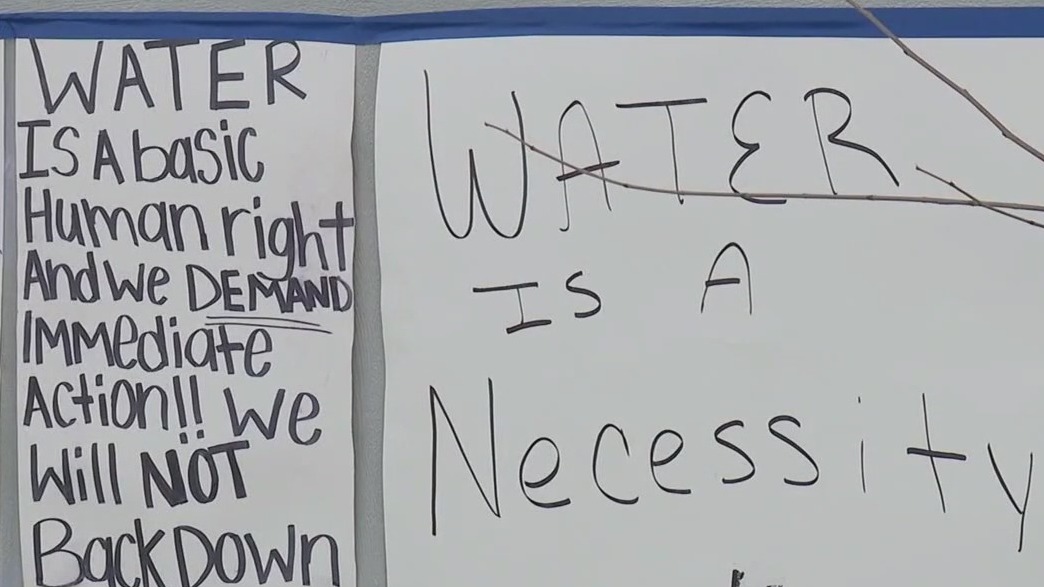 WATER
IS A basic
Human right
And we DEMAND
Immediate
Action!! We
Will NOT
Back Down
WATER
IS A
Necessity